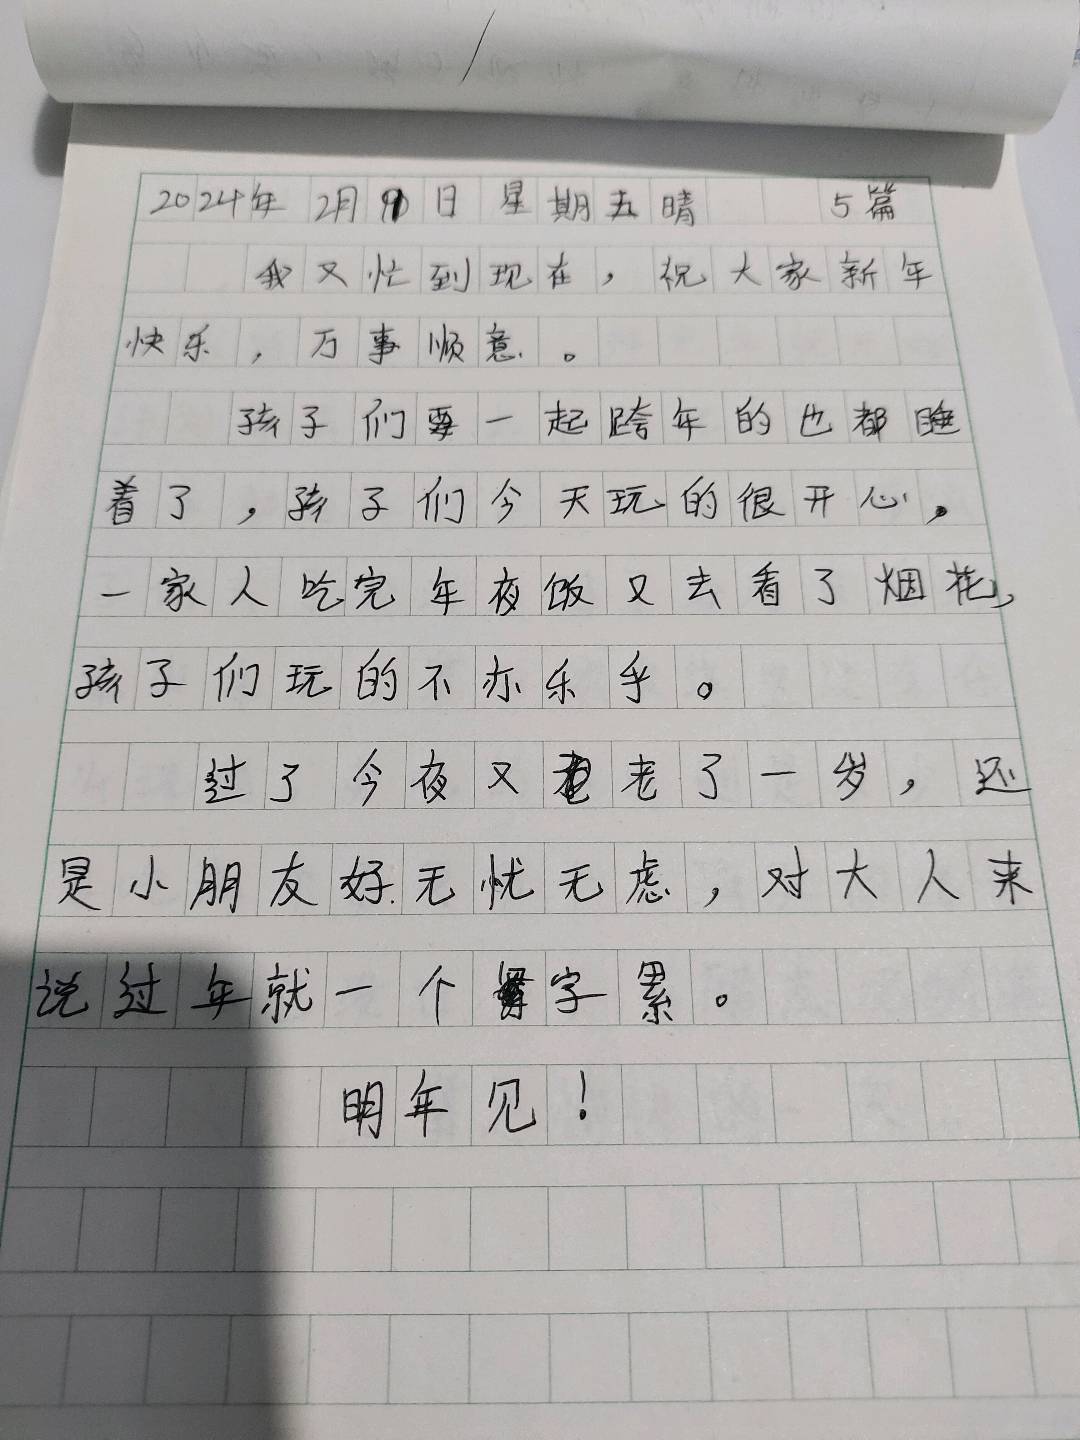 2024年2月9日 星期五晴 5篇
我又忙到现在，祝大家新年
快乐，万事顺意。
孩子们要一起跨年的也都睡
着了，孩子们今天玩的很开心，
一家人吃完年夜饭又去看了烟花，
孩子们玩的不亦乐乎。
过了今夜又老了一岁，还
是小朋友好无忧无虑，对大人来
说过年就一个字累。
明年见！